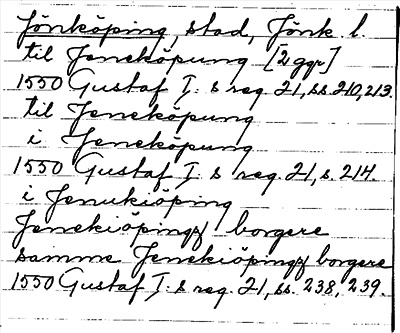 Jönköping, stad, Jönk. l.
til Jeneköpung [2 ggr]
1550 Gustaf I:s reg. 21, ss. 210, 213.
til Jeneköpung
i Jeneköpung
1550 Gustaf I:s reg. 21, s. 214.
i Jenukiöping
Jenekiöpings borgere
samme Jenekiöpings borgere
1550 Gustaf I:s reg. 21, ss. 238, 239.